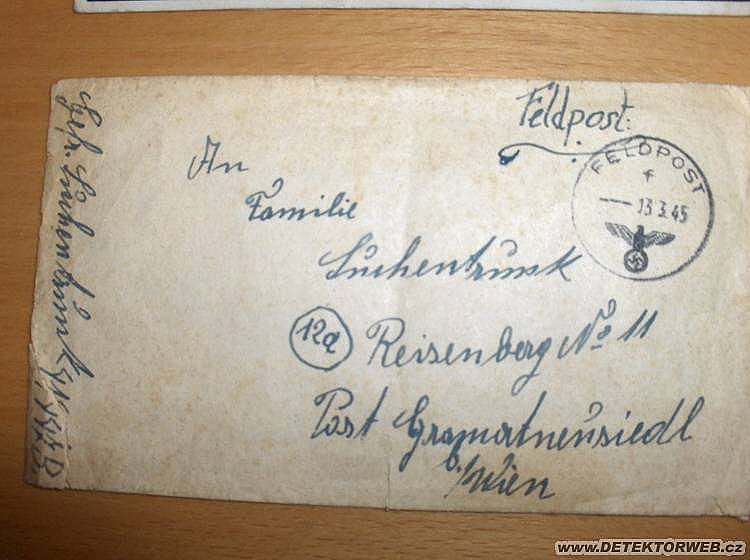 Feldpost:
FELDPOST
f
13.3.45
An
Familie
Suchentrunk
12a Reisenberg No 11
Post Gramatneusiedl
b/Wien
Gefr. Suchentrunk
www.DETEKTORWEB.cz